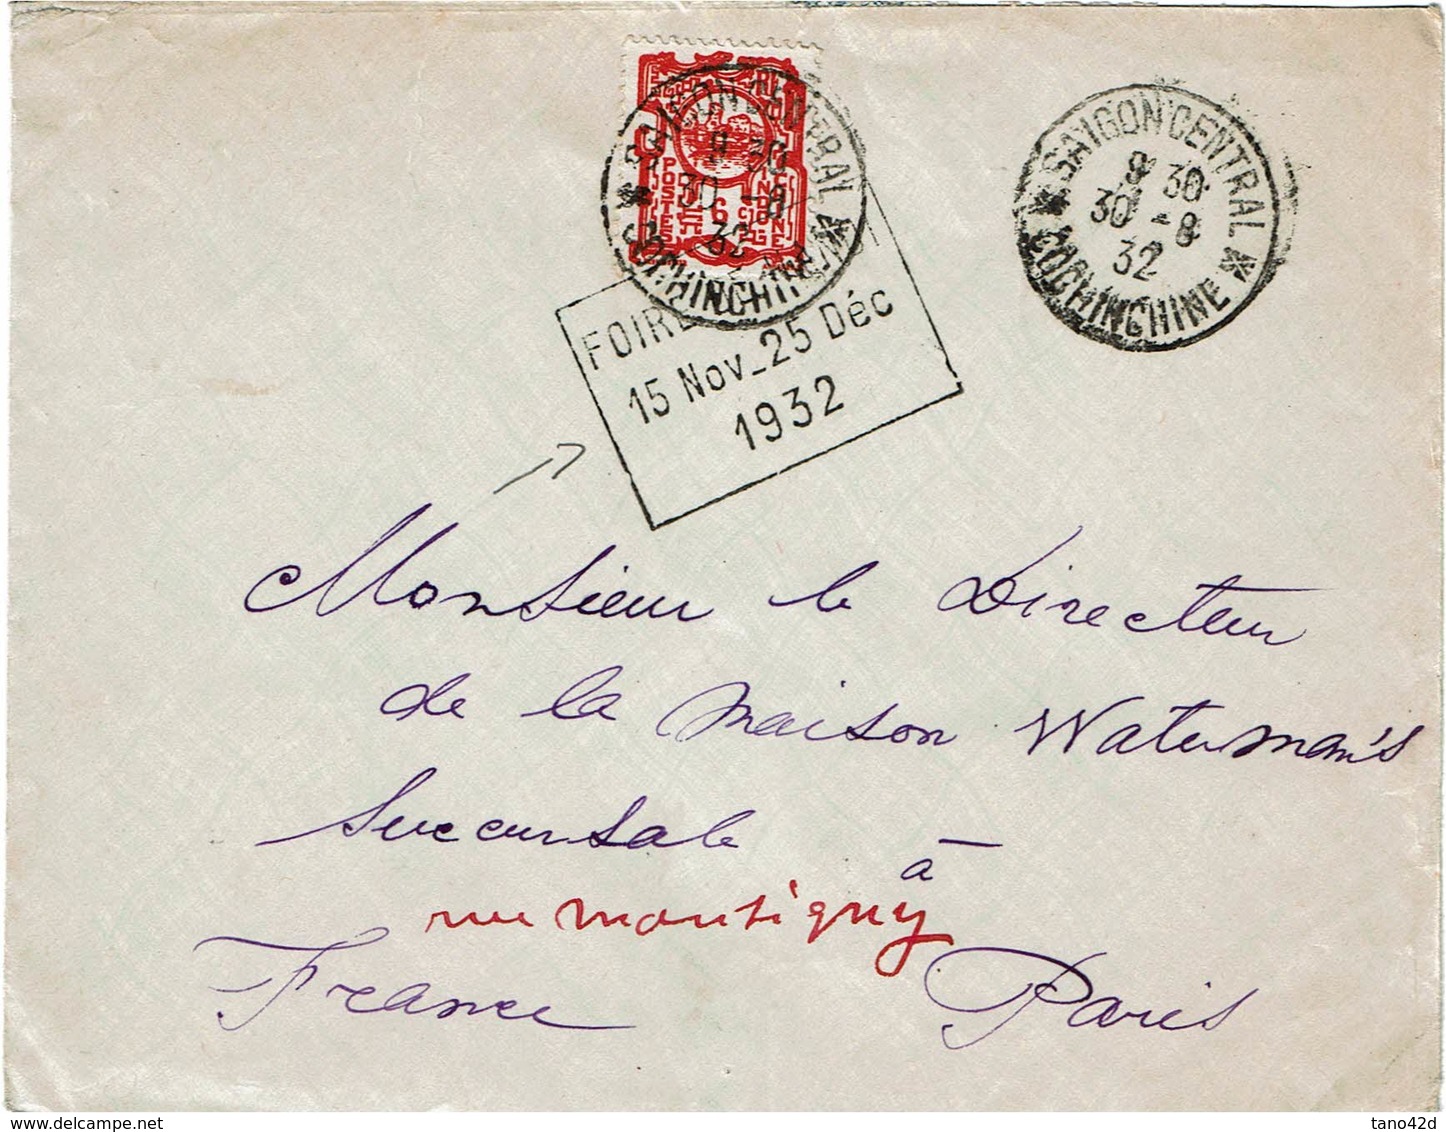 SAIGON CENTRAL
9 30
30 -8
32
COCHINCHINE
POSTES
6
SAIGON CENTRAL
9 30
30 -8
32
COCHINCHINE
FOIRE
15 Nov_25 Déc
1932
Monsieur le Directeur
de la maison Waterman's
Succursale
à
rue Montigny
France Paris
delcampe.net
tano42d